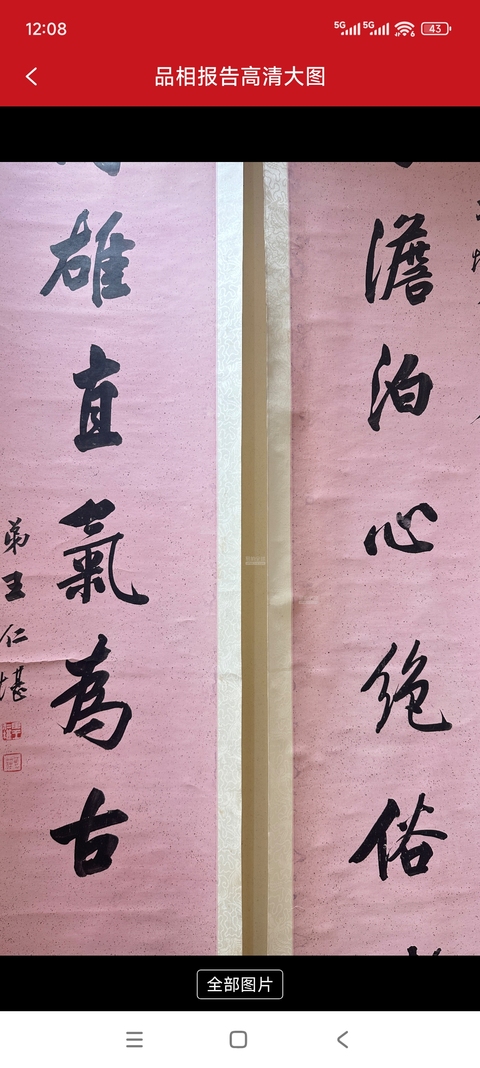 12:08
5G 5G 6 43
品相报告高清大图
澹泊心绝俗
雄直氣為古
弟王仁堪
全部图片